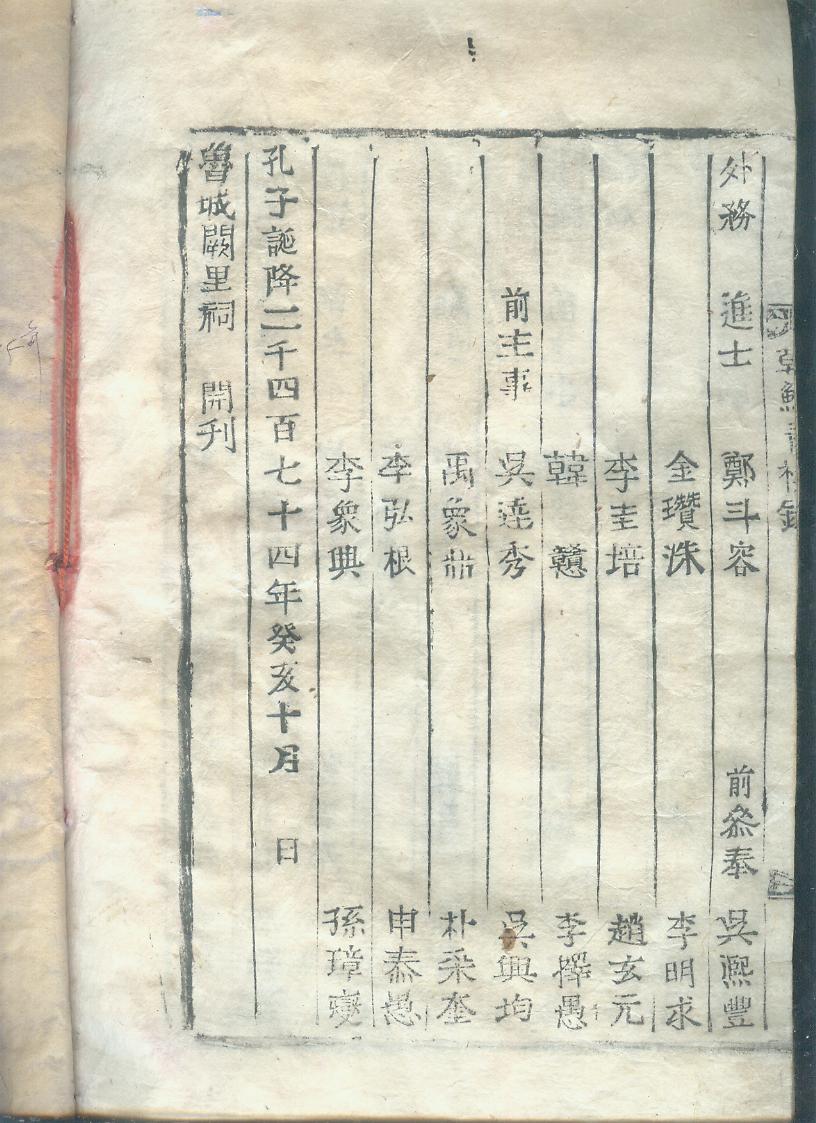 外務 進士 鄭斗容 前叅奉 吳熙豐
金瓚洙 李明求
李圭培 趙玄元
韓 李擇愚
前主事 吳達秀 吳興均
禹象鼎 朴采奎
李弘根 申泰愚
李象興 孫璋燮
孔子誕降二千四百七十四年癸亥十月 日
魯城闕里祠 開刋